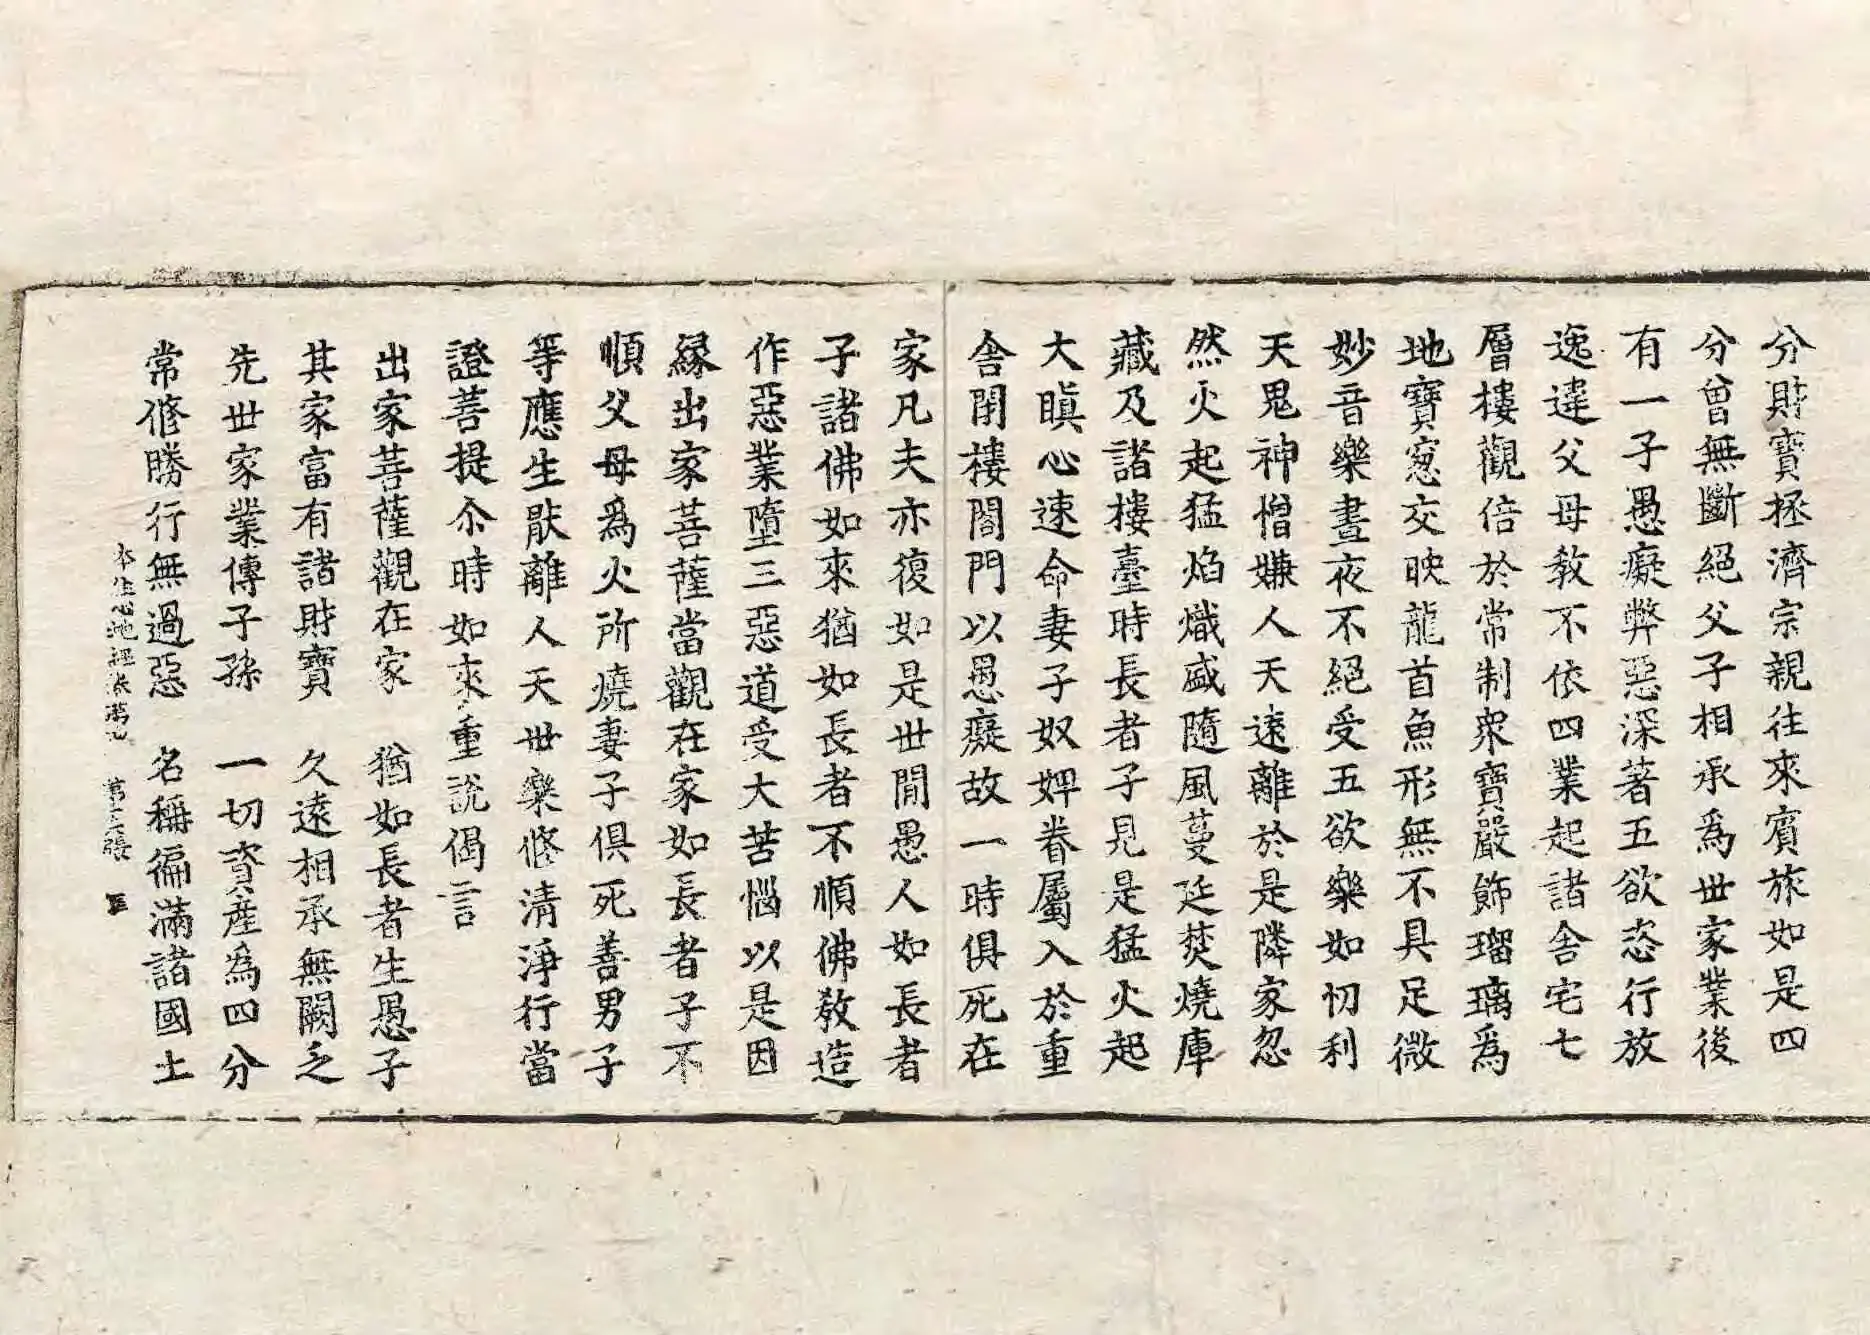 分財寶拯濟宗親往來賓旅如是四
分曾無斷絕父子相承爲世家業後
有一子愚癡弊惡深著五欲恣行放
逸違父母教不依四業起諸舍宅七
層樓觀倍於常制衆寶嚴飾瑠璃爲
地寶窓交映龍首魚形無不具足微
妙音樂晝夜不絕受五欲樂如忉利
天鬼神憎嫌人天遠離於是隣家忽
然火起猛焰熾盛隨風蔓延焚燒庫
藏及諸樓臺時長者子見是猛火起
大瞋心速命妻子奴婢眷屬入於重
舍閉樓閣門以愚癡故一時俱死在
家凡夫亦復如是世間愚人如長者
子諸佛如來猶如長者不順佛教造
作惡業墮三惡道受大苦惱以是因
緣出家菩薩當觀在家如長者子不
順父母爲火所燒妻子俱死善男子
等應生猒離人天世樂修清淨行當
證菩提尒時如來重說偈言
出家菩薩觀在家　猶如長者生愚子
其家富有諸財寶　久遠相承無闕乏
先世家業傳子孫　一切資產爲四分
常修勝行無過惡　名稱徧滿諸國土
本生心地經 第 張